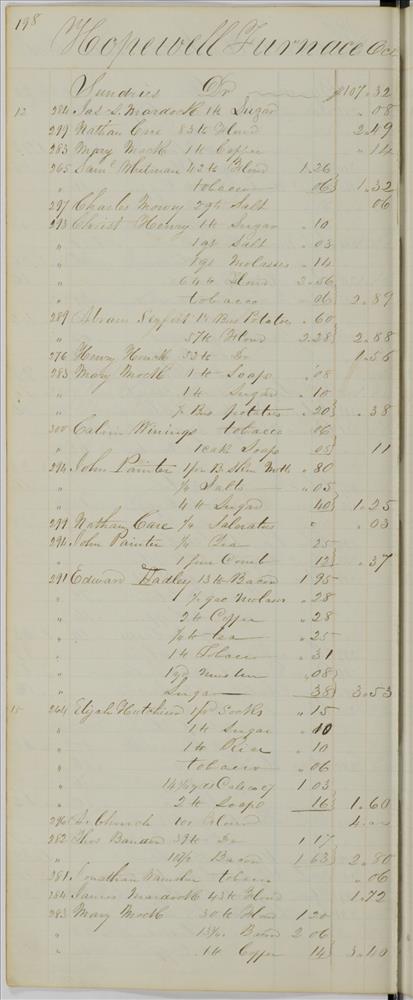 198
Hopewell Furnace Oct
Sundries Dr $107.32
12 284 Jas S. Mardock 1 lb Sugar " 08
299 Nathan Care 83 lb Flour 2.49
283 Mary Mock 1 lb Coffee " 14
265 Saml Whitman 42 lb Flour 1.26
" tobacco 06 1.32
297 Charles Mowry 2 qts Salt 06
293 Christ Henry 1 lb Sugar " 10
" 1 qt Salt " 03
" 1 qt Molasses " 14
" 64 lb Flour 2.56
" tobacco " 06 2.89
289 Abram Seyfert Bus Potatoes " 60
" 57 lb Flour 2.28 2.88
276 Henry Houck 52 lb Do 1.56
283 Mary Mock 1 lb Soap " 08
" 1 lb Sugar " 10
" Bus potatoes " 20 " 38
300 Calvin Winings tobacco 06
" 1 cake Soap 05 11
294 John Painter 1 pr B Skin Mitts " 80
" Salts " 05
" 4 lb Sugar 40 1.25
299 Nathan Care Saleratus " 03
294 John Painter Tea 25
" 1 fine Comb 12 " 37
291 Edward Hadley 13 lb Bacon 1 95
" ½ gal Molasses " 28
" 2 lb Coffee " 28
" ¼ lb tea " 25
" 1 lb Tobacco " 31
" 1 yd Muslin " 08
" Sugar 38 3.53
15 264 Elijah Hutchison 1 pr Socks " 15
" 1 lb Sugar " 10
" 1 lb Rice " 10
" tobacco " 06
" yds Calico 1 03
" 2 lb Soap 16 1.60
296 A. Church Flour
282 Thos Bandon 39 lb Do 1 17
" Bacon 1 63 2.80
281 Jonathan tobacco " 06
284 James Mardock 43 lb Flour 1.72
283 Mary Mock 30 lb Flour 1 20
" 13¾ Bacon 2 06
" 1 lb Coffee 14 3.40